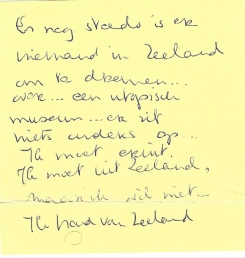 En nog steeds is er
niemand in Zeeland
om te dromen...
over... een utopisch
museum... er zit
niets anders op...
Ik moet
Ik moet uit Zeeland,
maar ik wil niet
Ik houd van Zeeland